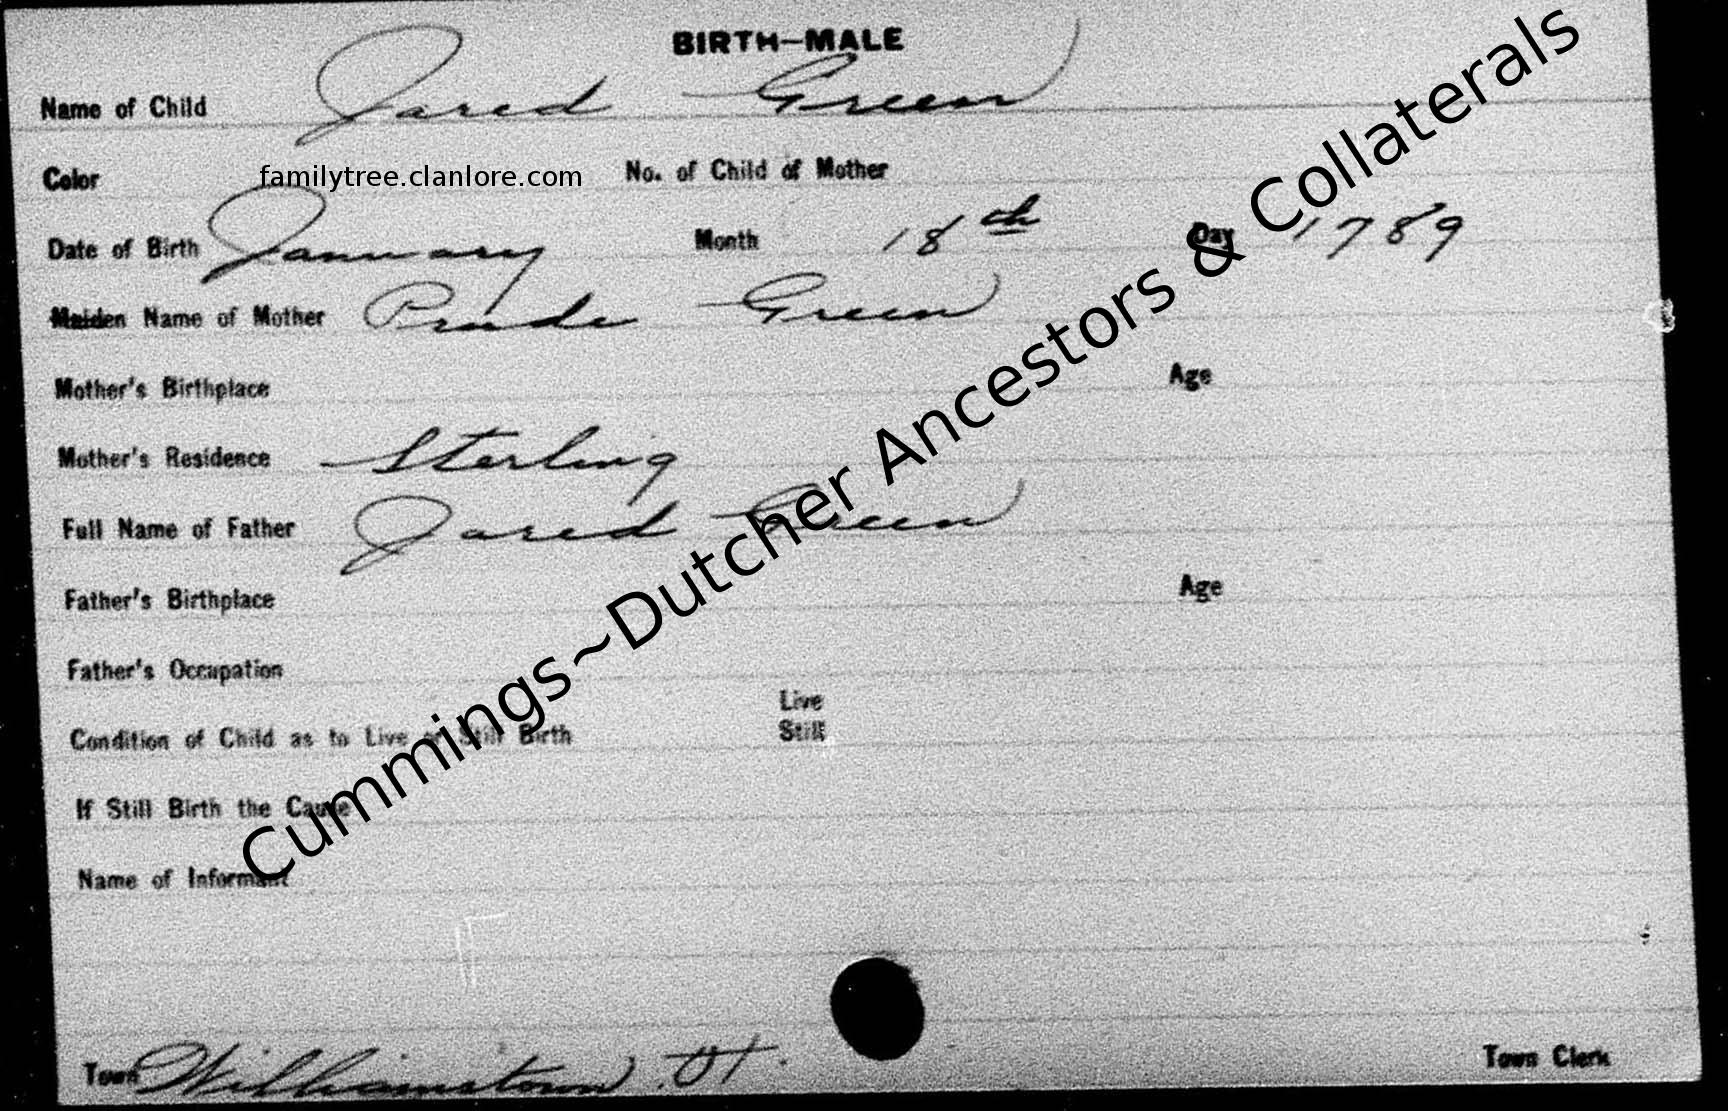 BIRTH—MALE
Name of Child Jared Green
Color familytree.clanlore.com No. of Child of Mother
Date of Birth January Month 18th Day 1789
Maiden Name of Mother Prude Green
Mother's Birthplace Age
Mother's Residence Sterling
Full Name of Father Jared Green
Father's Birthplace Age
Father's Occupation
Condition of Child as to Live or Still Birth Live
Still
If Still Birth the Cause
Name of Informant
Town Williamstown Vt. Town Clerk
Cummings~Dutcher Ancestors & Collaterals